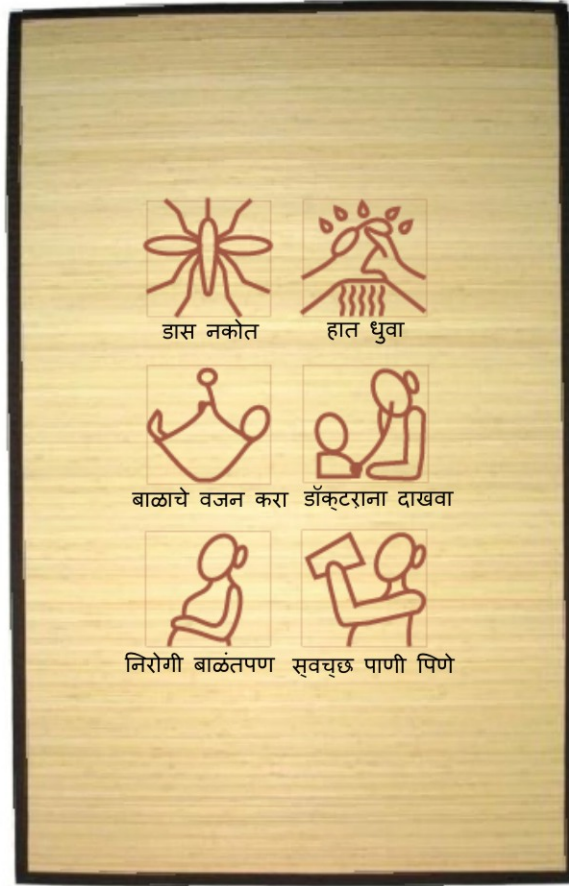 डास नकोत
हात धुवा
बाळाचे वजन करा
डॉक्टऱाना दाखवा
निरोगी बाळंतपण
स्वच्छ पाणी पिणे